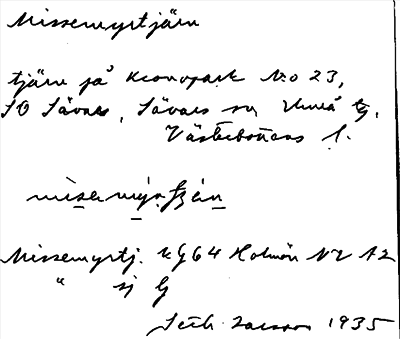 Missemyrtjärn
tjärn på Kronopark No 23,
SO Sävar, Sävars sn, Umeå tg.
Västerbottens l.
Missemyrtj. kg 64 Holmön NV A2
" sj
Seth Larsson 1935